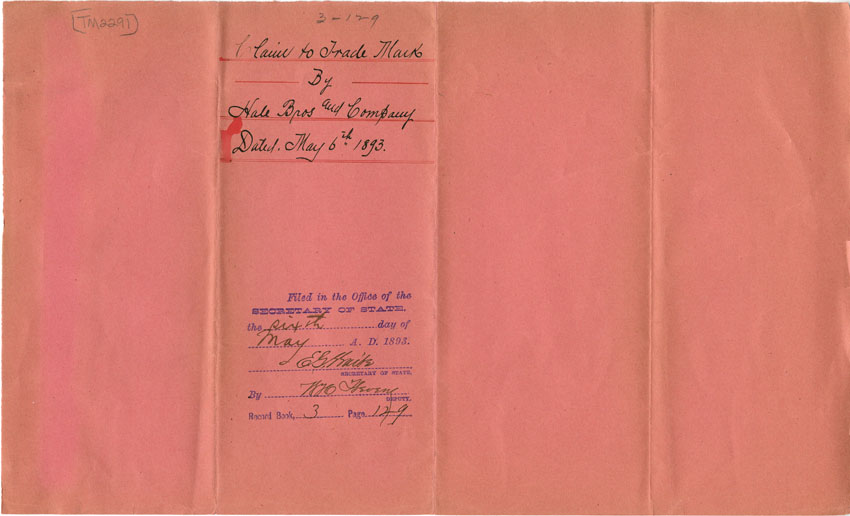 [TM2229]
3-129
Claim to Trade Mark
By
Hale Bros and Company
Dated. May 6th 1893.
Filed in the Office of the
SECRETARY OF STATE,
the sixth day of
May A. D. 1893.
E G Waite
SECRETARY OF STATE.
By
DEPUTY.
Record Book, 3 Page 129